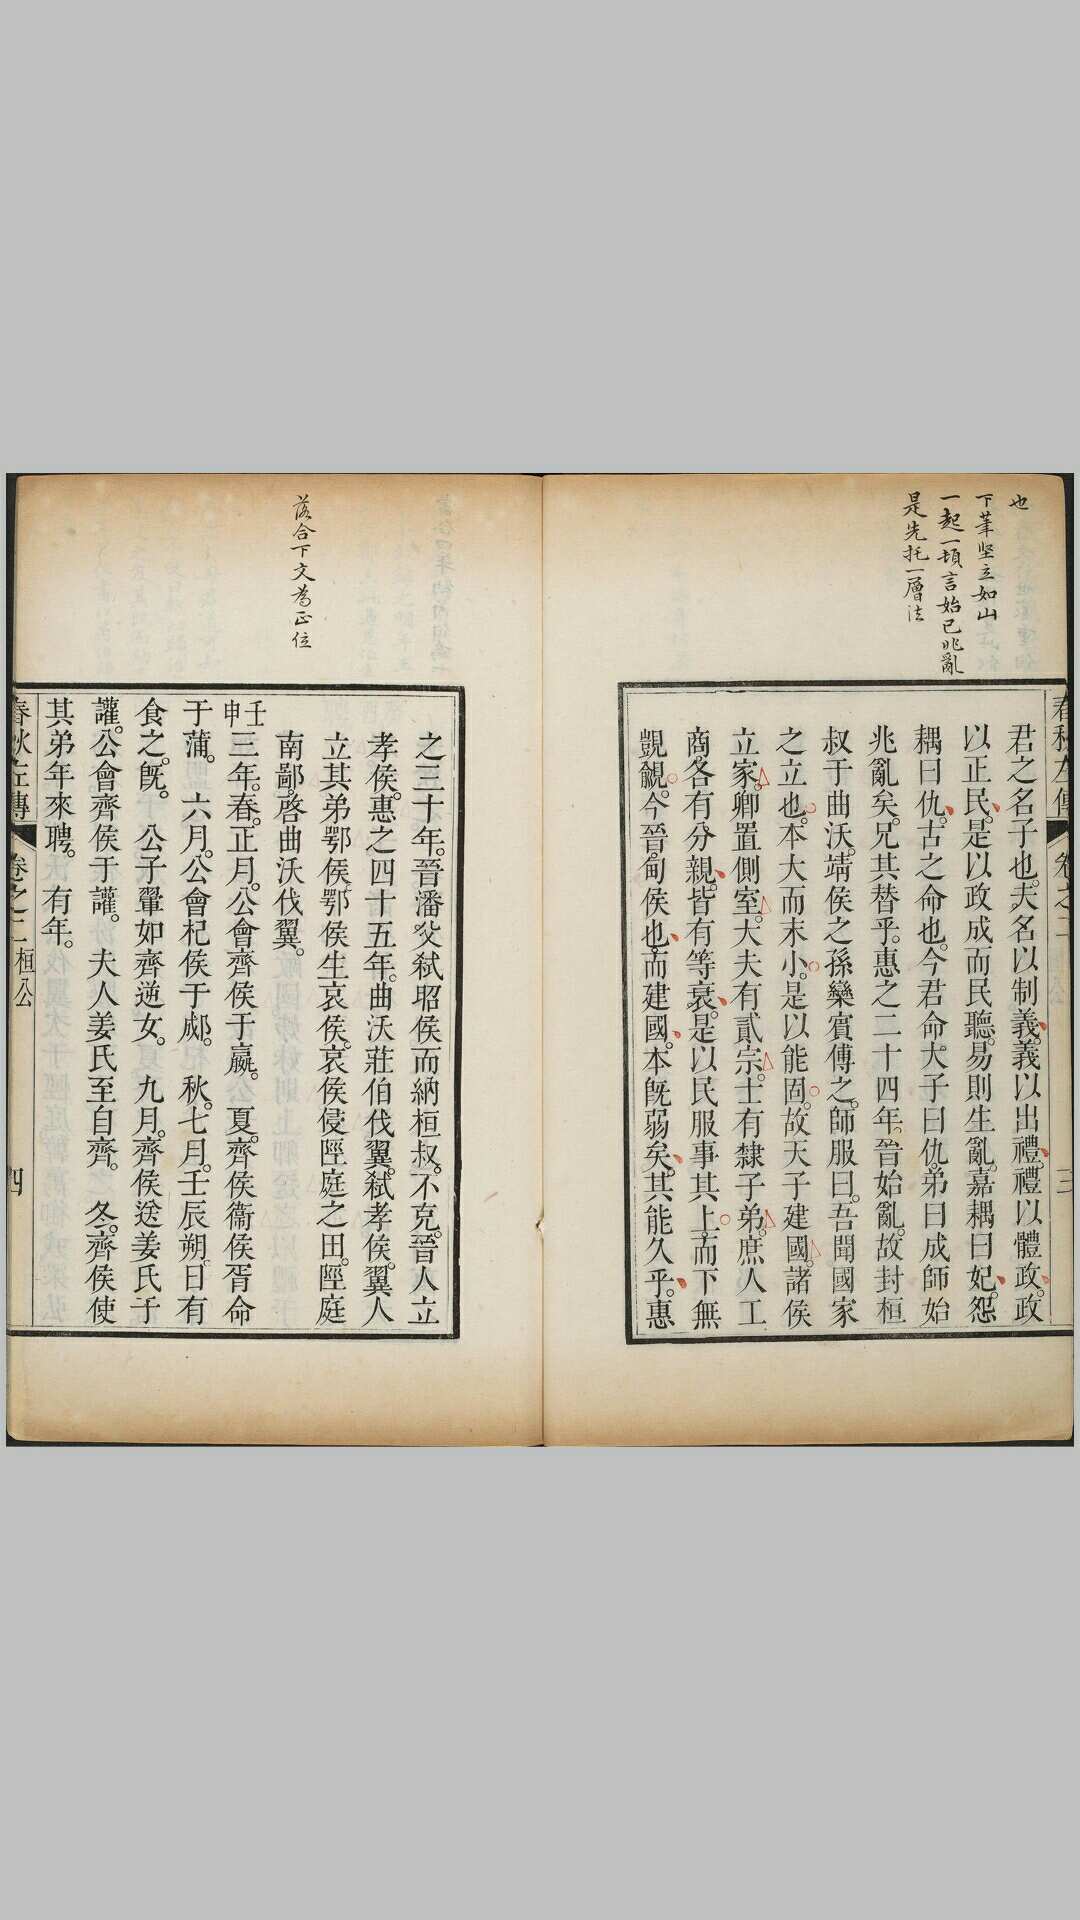 也
下筆堅立如山
一起一頓言始已兆亂
是先托一層法
春秋左傳 卷之二 三
君之名子也夫名以制義義以出禮禮以體政政
以正民是以政成而民聽易則生亂嘉耦曰妃怨
耦曰仇古之命也今君命大子曰仇弟曰成師始
兆亂矣兄其替乎惠之二十四年晉始亂故封桓
叔于曲沃靖侯之孫欒賓傅之師服曰吾聞國家
之立也本大而末小是以能固故天子建國諸侯
立家卿置側室大夫有貳宗士有隸子弟庶人工
商各有分親皆有等衰是以民服事其上而下無
覬覦今晉甸侯也而建國本旣弱矣其能久乎惠
落合下文為正位
之三十年晉潘父弑昭侯而納桓叔不克晉人立
孝侯惠之四十五年曲沃莊伯伐翼弑孝侯翼人
立其弟鄂侯鄂侯生哀侯哀侯侵陘庭之田陘庭
南鄙啓曲沃伐翼
壬申三年春正月公會齊侯于嬴 夏齊侯衞侯胥命
于蒲 六月公會杞侯于郕 秋七月壬辰朔日有
食之旣 公子翬如齊逆女 九月齊侯送姜氏于
讙公會齊侯于讙 夫人姜氏至自齊 冬齊侯使
其弟年來聘 有年
春秋左傳 卷之二 桓公 四